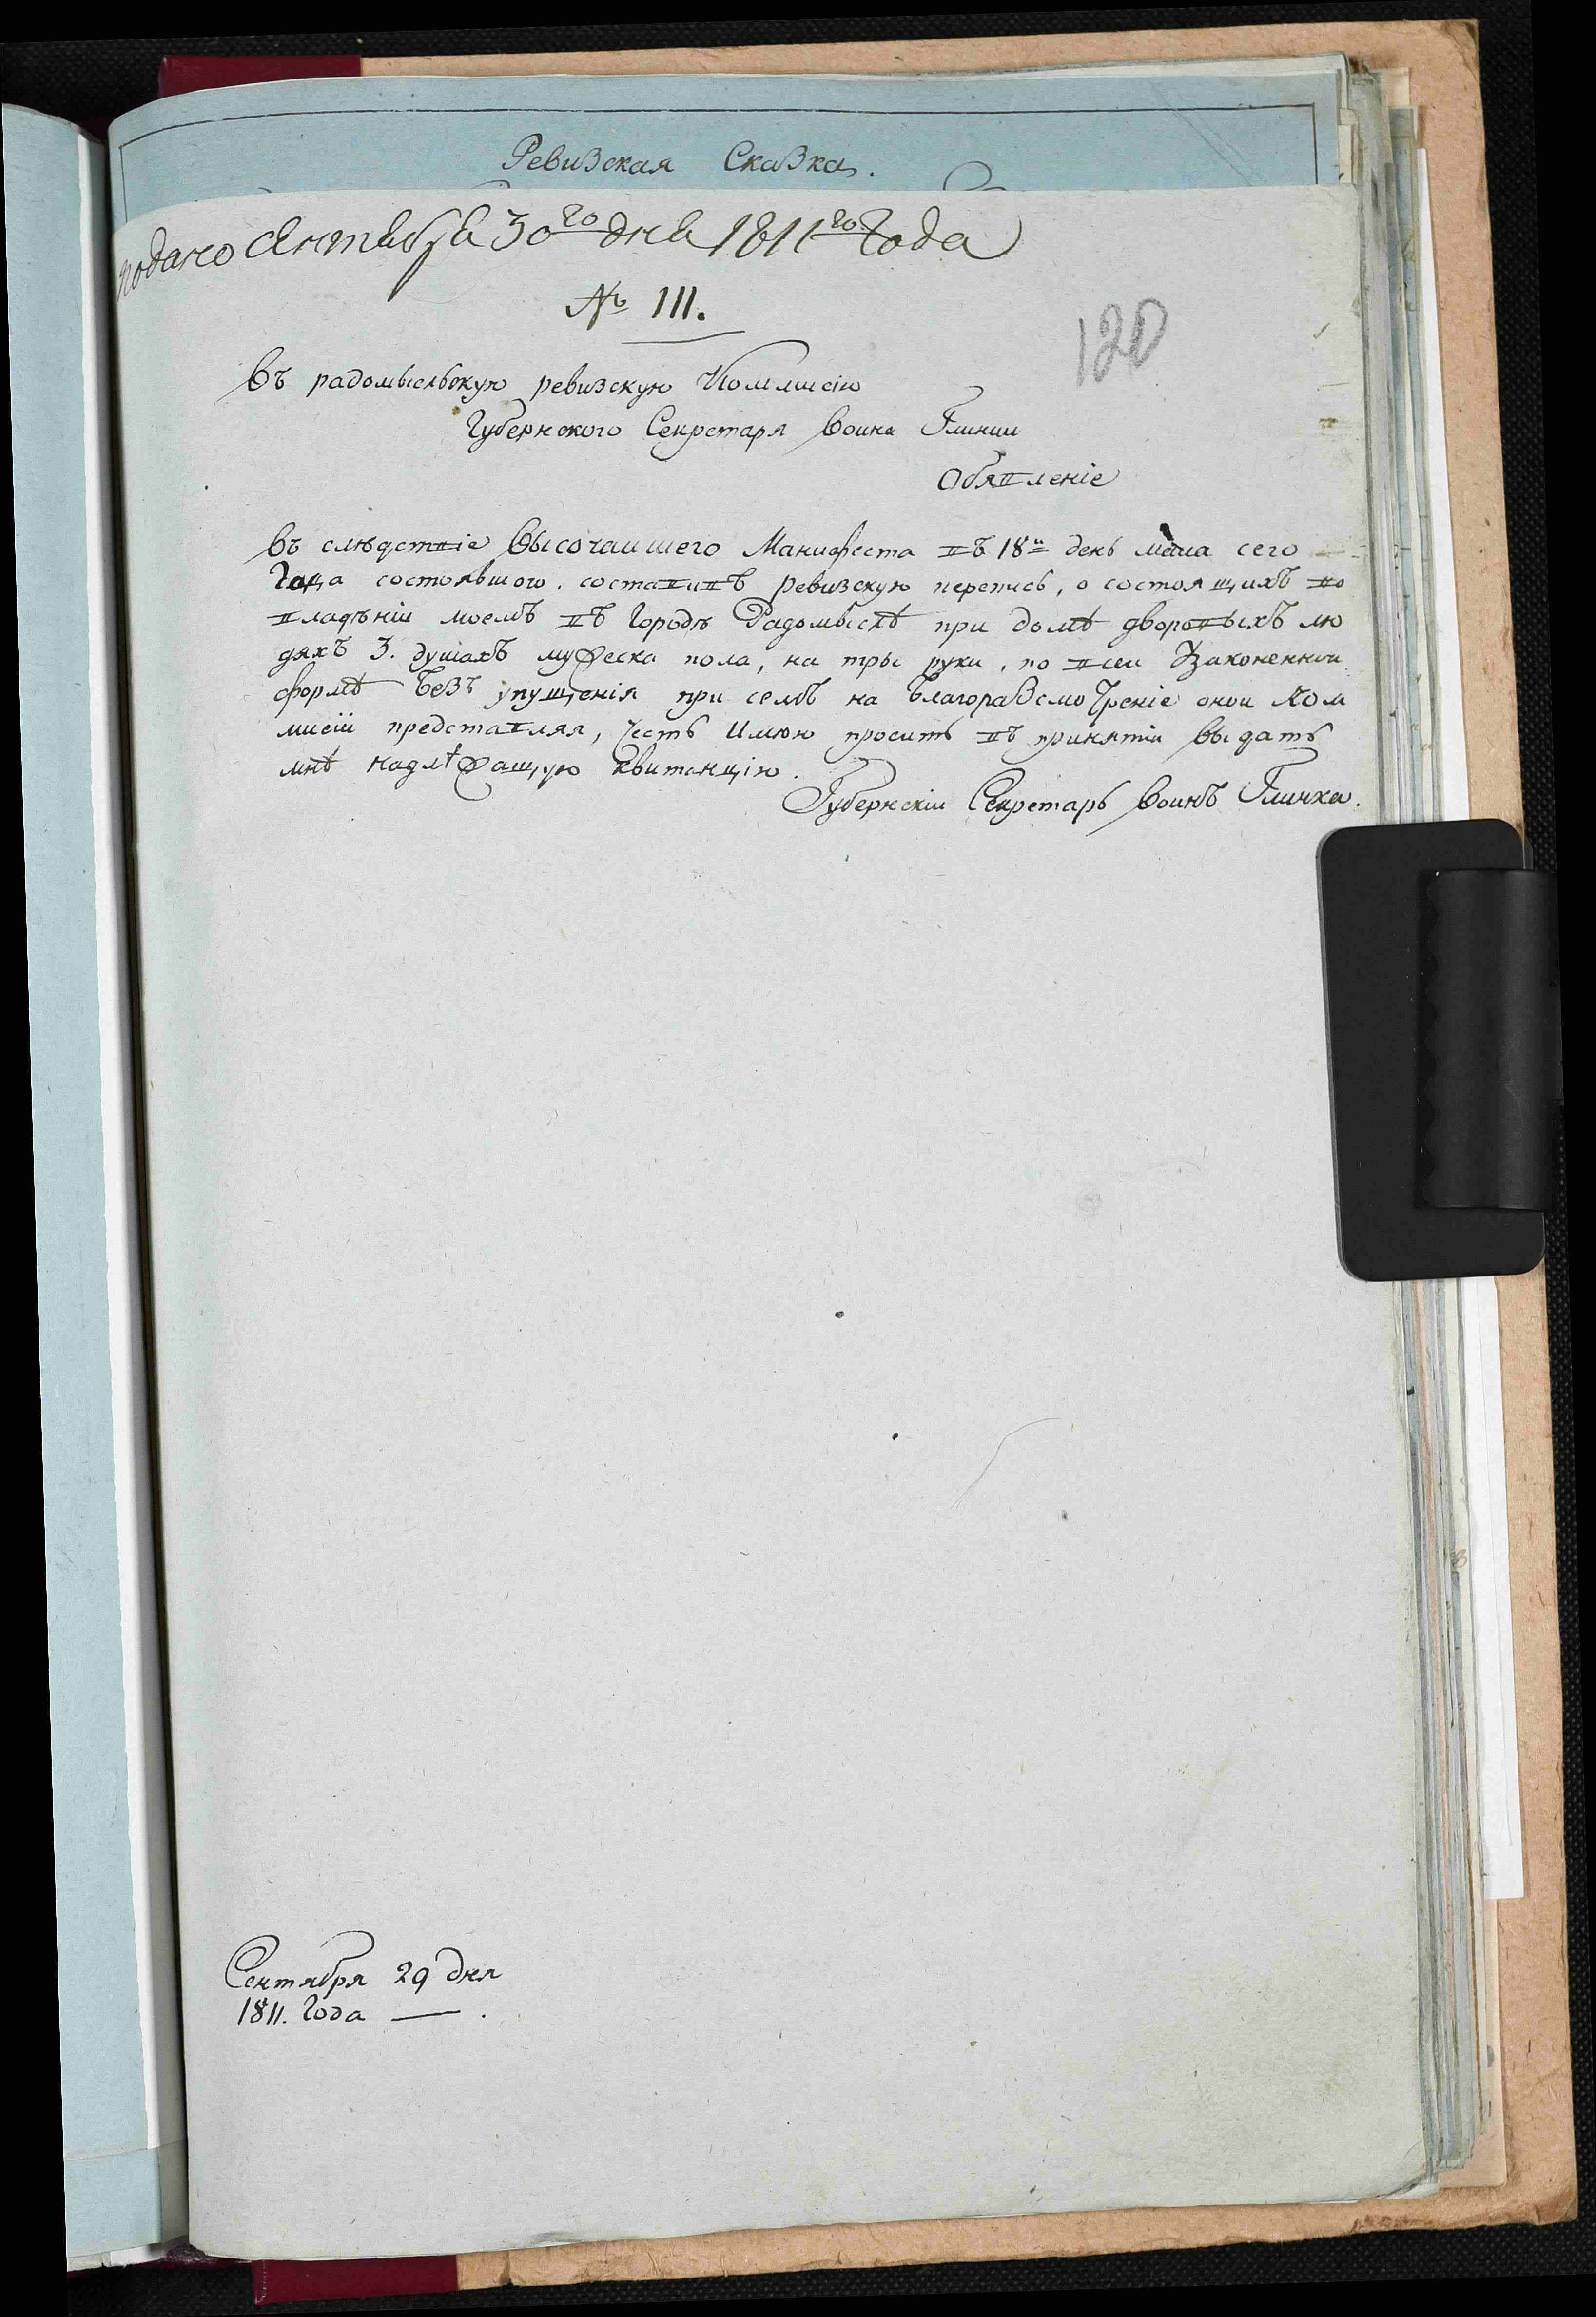 Ревизская Сказка.
подано сентебра 30го дня 1811го года
№ 111.
120
Въ радомысльскую ревизскую Коммисію
Губернского Секретаря Воина Глинки
Обявленіе
Въ слѣдствіе Высочаишего Манифеста въ 18й день маиа сего
Года состоявшого. составивъ ревизскую перепись, о состоящихъ во
владѣніи моемъ въ Городѣ Радомыслѣ при домѣ дворовыхъ лю
дяхъ 3. душахъ мужеска пола, на тры руки, по всеи Узаконеннои
формѣ безъ упущенія при семъ на благоразсмотреніе онои Ком
мисіи представляя, честь имею просить въ принятіи выдать
мнѣ надлѣжащую квитанцію.
Губернскіи Секретарь Воинъ Глинка.
Сентября 29 дня
1811. Года — .